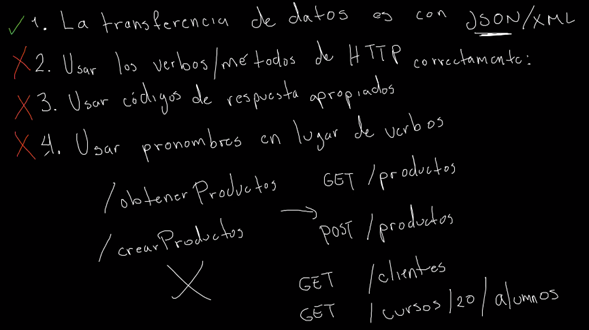 1. La transferencia de datos es con JSON/XML
2. Usar los verbos/métodos de HTTP correctamente:
3. Usar códigos de respuesta apropiados
4. Usar pronombres en lugar de verbos
/obtenerProductos
GET /productos
/crearProductos
POST /productos
GET /clientes
GET /cursos/20/alumnos